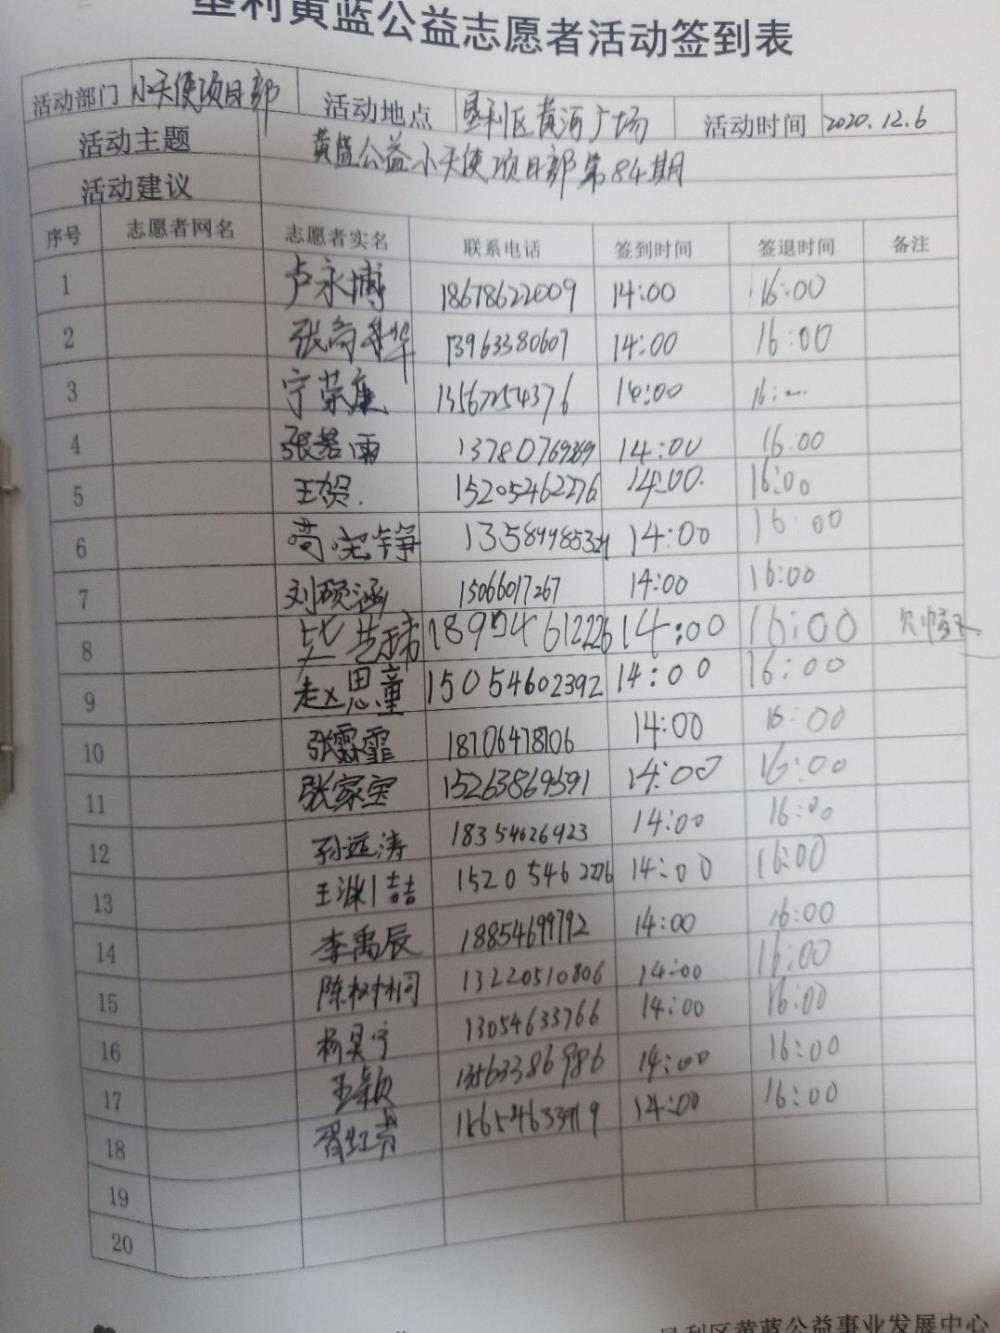 垦利黄蓝公益志愿者活动签到表
活动部门 小天使项目部 活动地点 垦利区黄河广场 活动时间 2020.12.6
活动主题 黄蓝公益小天使项目部第84期
活动建议
序号 志愿者网名 志愿者实名 联系电话 签到时间 签退时间 备注
1 卢永博 18678622009 14:00 16:00
2 13963380607 14:00 16:00
3 宁荣康 14:00 16:
4 张若雨 14:00 16:00
5 王贺. 15205462276 14:00. 16:00
6 14:00 16:00
7 刘硕涵 15066017267 14:00 16:00
8 14:00 16:00
9 赵思童 15054602392 14:00 16:00
10 张霖霏 18706478106 14:00 16:00
11 张家宝 15263869591 14:00 16:00
12 孙远涛 18354626923 14:00 16:00
13 15205462276 14:00 16:00
14 李禹辰 18854699792 14:00 16:00
15 陈树桐 13220510806 14:00 16:00
16 杨昊宁 13054633766 14:00 16:00
17 王颖 13563386986 14:00 16:00
18 14:00 16:00
19
20
垦利区黄蓝公益事业发展中心